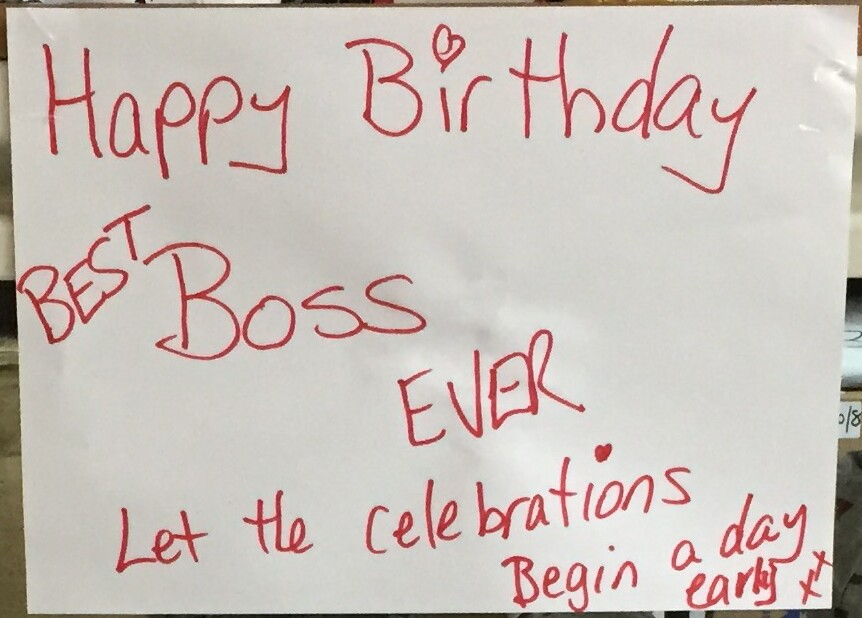 Happy Birthday
BEST Boss
EVER
Let the celebrations
Begin a day
early xx